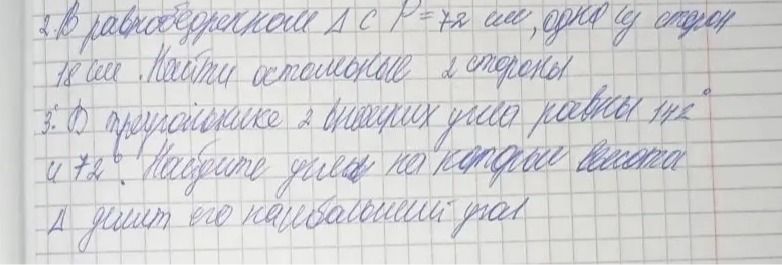 2. В равнобедренном Δ с P = 72 см, одна из сторон
18 см. Найти остальные 2 стороны
3. В треугольнике 2 внешних угла равны 142°
и 72°. Найдите углы на которые высота
Δ делит его наибольший угол